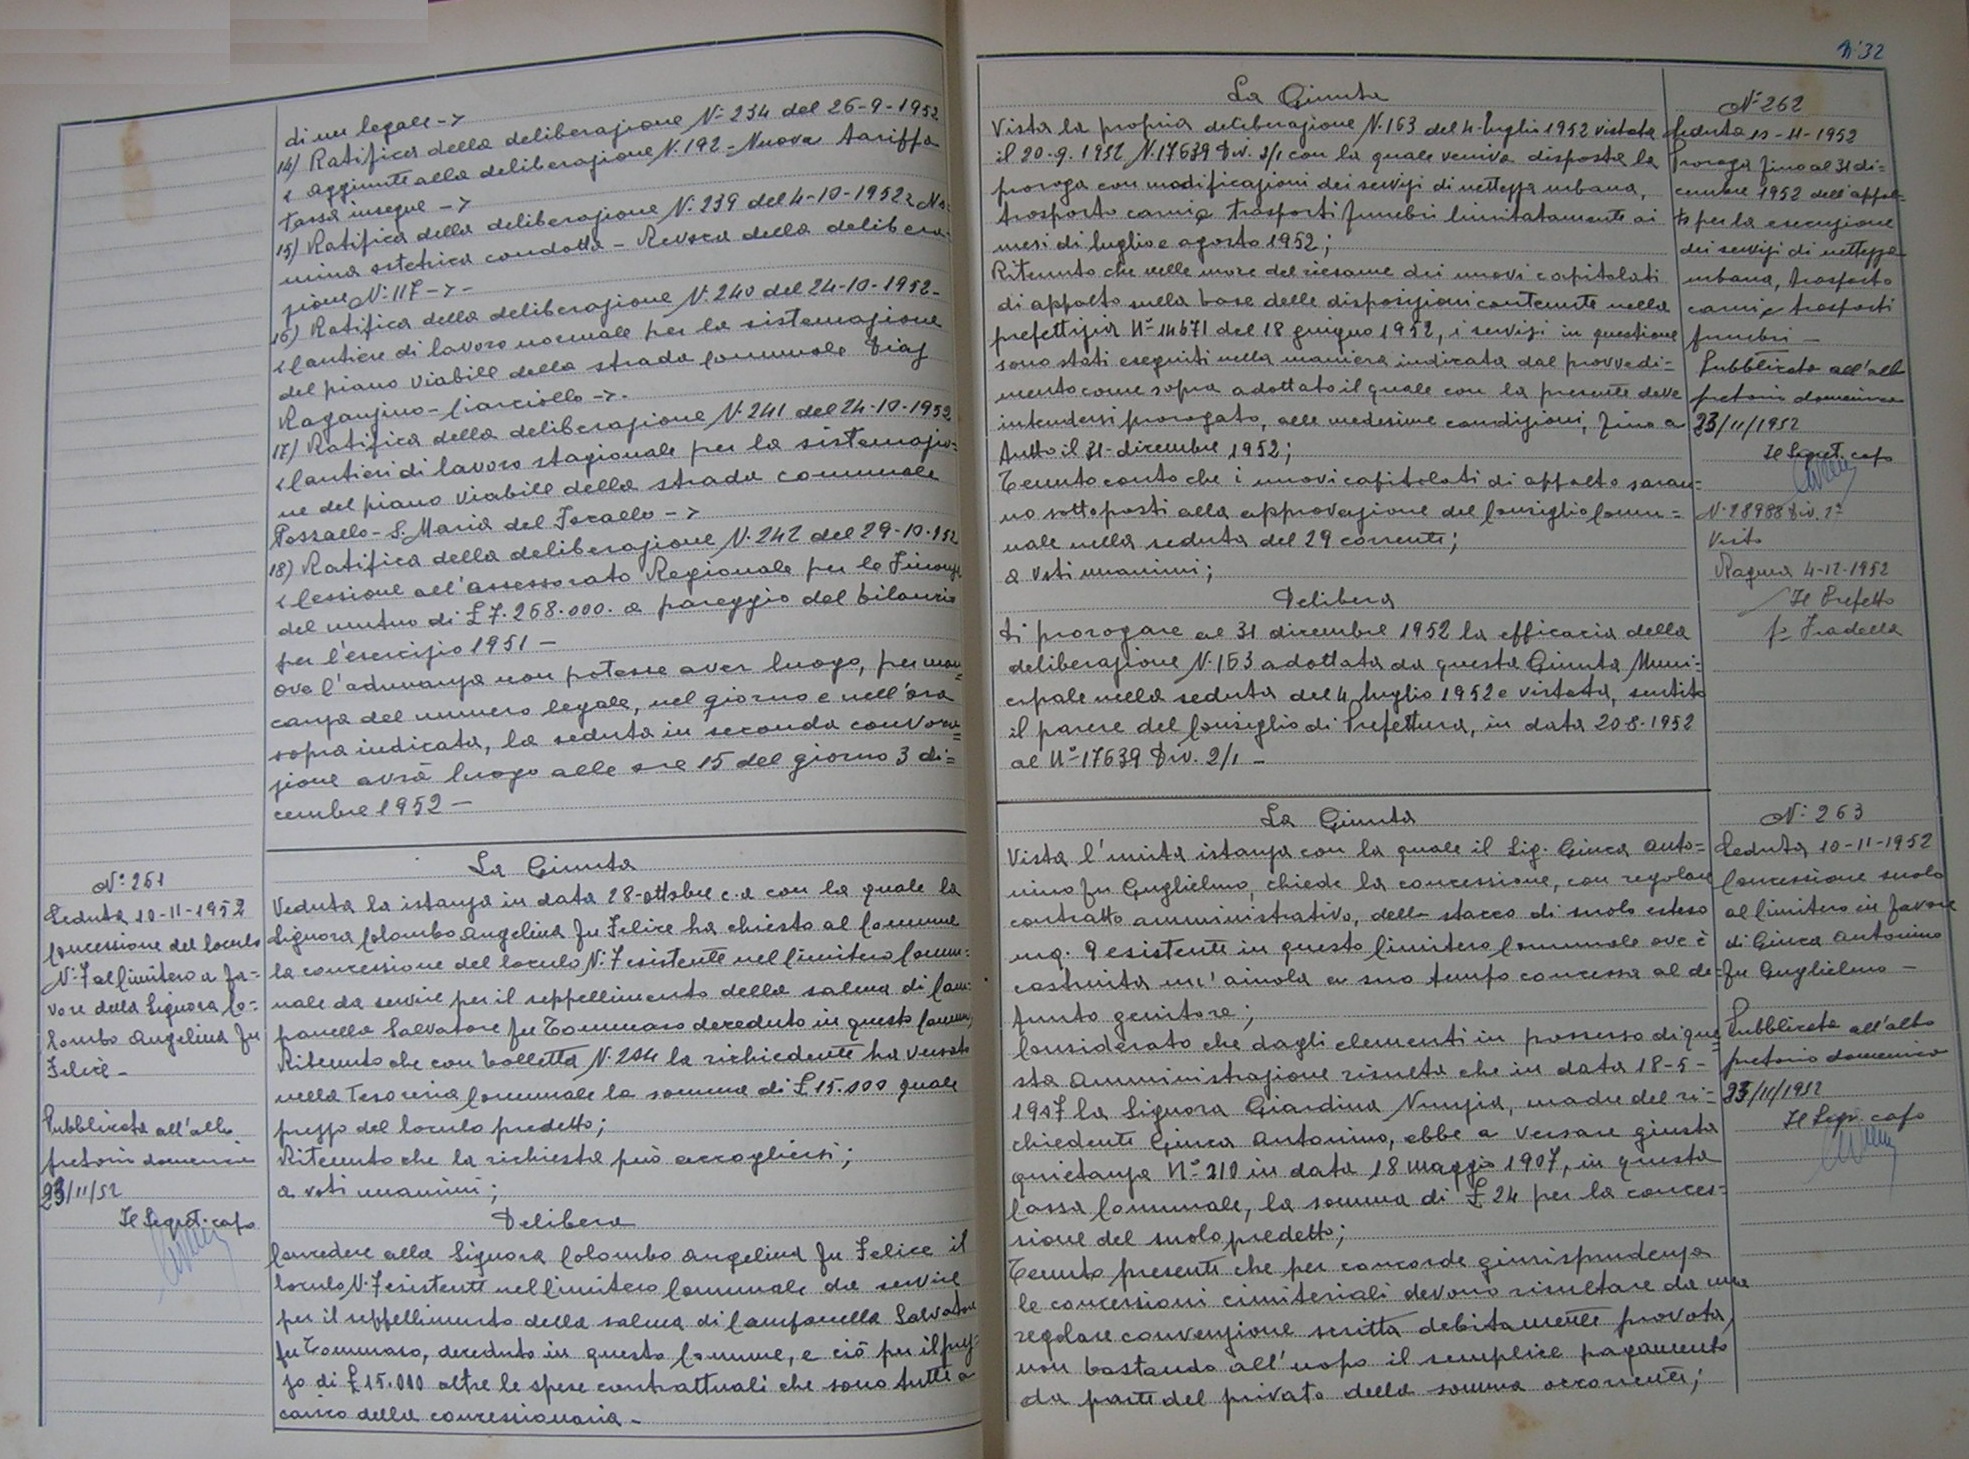 di un legale ->
14) Ratifica della deliberazione N. 234 del 26-9-1952
< Aggiunte alla deliberazione N. 192 - Nuova tariffa
tassa insegne ->
15) Ratifica della deliberazione N. 239 del 4-10-1952 < No=
mina ostetrica condotta - Revoca della delibera=
zione N. 117 ->-
16) Ratifica della deliberazione N. 240 del 24-10-1952-
< Cantiere di lavoro normale per la sistemazione
del piano viabile della strada comunale
->.
17) Ratifica della deliberazione N. 241 del 24-10-1952
< Cantieri di lavoro stagionale per la sistemazio=
ne del piano viabile della strada comunale
- S. Maria del Focallo ->
18) Ratifica della deliberazione N. 242 del 29-10-152
< Cessione all'Assessorato Regionale per le Finanze
del mutuo di £ 7.268.000. a pareggio del bilancio
per l'esercizio 1951 -
Ove l'adunanza non potesse aver luogo, per man=
canza del numero legale, nel giorno e nell'ora
sopra indicata, la seduta in seconda convoca=
zione avrà luogo alle ore 15 del giorno 3 di=
cembre 1952 -
N. 261
Seduta 10-11-1952
Concessione del loculo
N. 7 al Cimitero a fa=
vore della Signora Co=
lombo Angelina fu
Felice -
Pubblicata all'albo
pretorio domenica
23/11/52
Il Segret. capo
La Giunta
Veduta la istanza in data 28 ottobre c.a con la quale la
Signora Colombo Angelina fu Felice ha chiesto al Comune
la concessione del loculo N. 7 esistente nel Cimitero Comu=
nale da servire per il seppellimento della salma di Cam=
panella Salvatore fu Tommaso deceduto in questo Comune;
Ritenuto che con bolletta N. 204 la richiedente ha versato
nella Tesoreria Comunale la somma di £ 15.000 quale
prezzo del loculo predetto;
Ritenuto che la richiesta può accogliersi;
a voti unanimi;
Delibera
Concedere alla Signora Colombo Angelina fu Felice il
loculo N. 7 esistente nel Cimitero Comunale da servire
per il seppellimento della salma di Campanella Salvatore
fu Tommaso, deceduto in questo Comune, e ciò per il prez=
zo di £ 15.000 oltre le spese contrattuali che sono tutte a
carico della concessionaria -
N. 32
La Giunta
Vista la propria deliberazione N. 163 del 4-luglio 1952 vistata
il 20-9-1952 N. 17639 Div. 2/1 con la quale veniva disposta la
proroga con modificazioni dei servizi di nettezza urbana,
trasporto carni e trasporti funebri limitatamente ai
mesi di luglio e agosto 1952;
Ritenuto che nelle more del riesame dei nuovi capitolati
di appalto sulla base delle disposizioni contenute nella
prefettizia N. 14671 del 18 giugno 1952, i servizi in questione
sono stati eseguiti nella maniera indicata dal provvedi=
mento come sopra adottato il quale con la presente deve
intendersi prorogato, alle medesime condizioni, fino a
tutto il 31-dicembre 1952;
Tenuto conto che i nuovi capitolati di appalto saran=
no sottoposti alla approvazione del Consiglio Comu=
nale nella seduta del 29 corrente;
a voti unanimi;
Delibera
Di prorogare al 31 dicembre 1952 la efficacia della
deliberazione N. 163 adottata da questa Giunta Muni=
cipale nella seduta del 4 luglio 1952 e vistata, sentito
il parere del Consiglio di Prefettura, in data 20-8-1952
al N. 17639 Div. 2/1 -
N. 262
Seduta 10-11-1952
Proroga fino al 31 di=
cembre 1952 dell'appal=
to per la esecuzione
dei servizi di nettezza
urbana, trasporto
carni e trasporti
funebri -
Pubblicata all'albo
pretorio domenica
23/11/1952
Il Segret. capo
N. 28988 Div. 2ª
Visto
Ragusa 4-12-1952
Il Prefetto
fº Fradella
La Giunta
Vista l'unita istanza con la quale il Sig. Giuca Anto=
nino fu Guglielmo, chiede la concessione, con regolare
contratto amministrativo, dello stacco di suolo esteso
mq. 9 esistente in questo Cimitero Comunale ove è
costruita un'aiuola a suo tempo concessa al de=
funto genitore;
Considerato che dagli elementi in possesso di que=
sta Amministrazione risulta che in data 18-5-
1907 la Signora Giardina Nunzia, madre del ri=
chiedente Giuca Antonino, ebbe a versare giusta
quietanza N. 210 in data 18 maggio 1907, in questa
Cassa Comunale, la somma di £ 24 per la conces=
sione del suolo predetto;
Tenuto presente che per concorde giurisprudenza
le concessioni cimiteriali devono risultare da una
regolare convenzione scritta debitamente provata,
non bastando all'uopo il semplice pagamento
da parte del privato della somma occorrente;
N. 263
Seduta 10-11-1952
Concessione suolo
al Cimitero in favore
di Giuca Antonino
fu Guglielmo -
Pubblicata all'albo
pretorio domenica
23/11/1952
Il Segr. capo